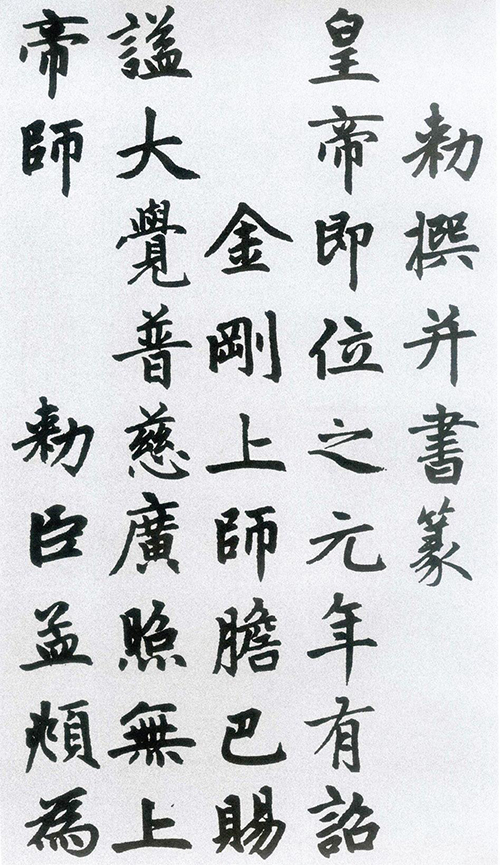 勅撰并書篆
皇帝即位之元年有詔
金剛上師膽巴賜
謚大覺普慈廣照無上
帝師勅臣孟頫為